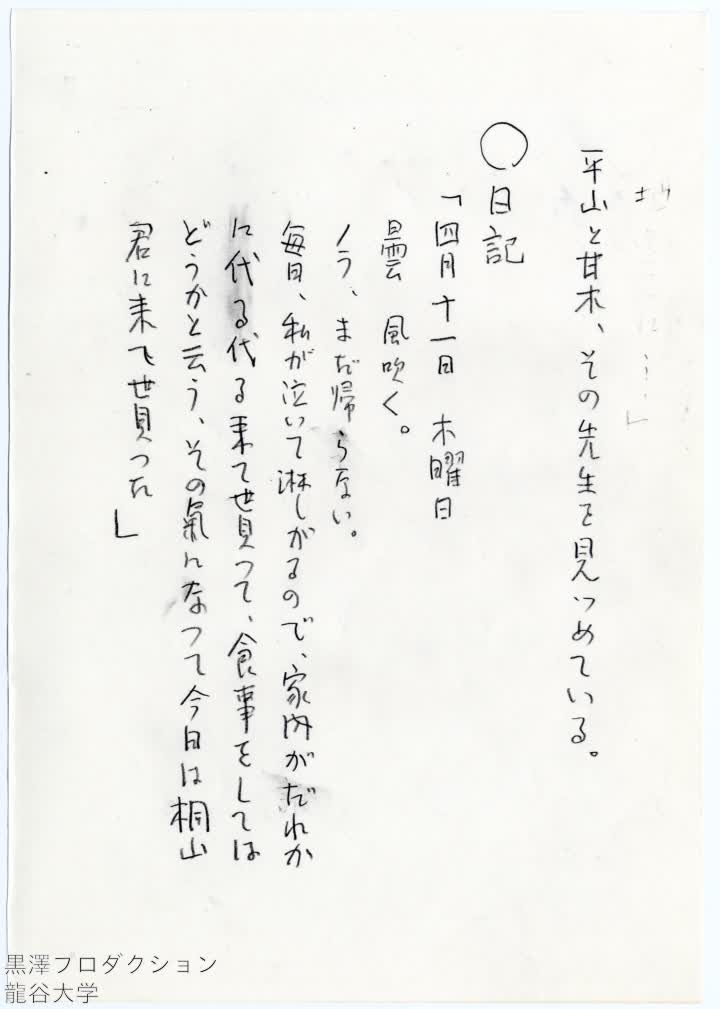 平山と甘木、その先生を見つめている。
○日記
「四月十一日 木曜日
曇 風吹く。
ノラ、まだ帰らない。
毎日、私が泣いて淋しがるので、家内がだれか
に代る代る来て貰って、食事をしては
どうかと云う、その氣になって今日は桐山
君に来て貰った」
黒澤プロダクション
龍谷大学